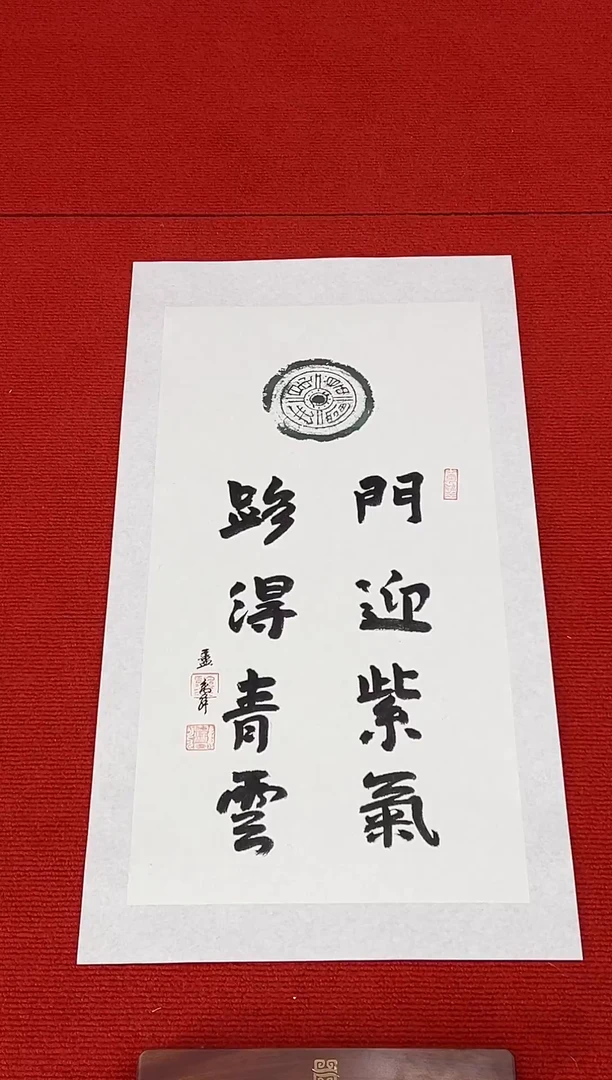 門迎紫氣
路得青雲